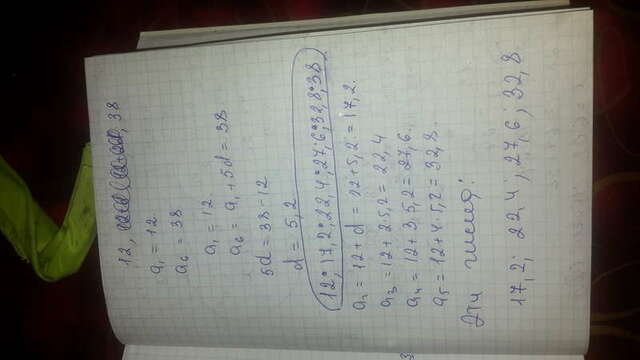 12, 38
a₁ = 12
a₆ = 38
a₁ = 12
a₆ = a₁ + 5d = 38
5d = 38 - 12
d = 5,2
12; 17,2; 22,4; 27,6; 32,8; 38
a₂ = 12 + d = 12 + 5,2 = 17,2.
a₃ = 12 + 2·5,2 = 22,4
a₄ = 12 + 3·5,2 = 27,6
a₅ = 12 + 4·5,2 = 32,8.
Эти числа:
17,2; 22,4; 27,6; 32,8